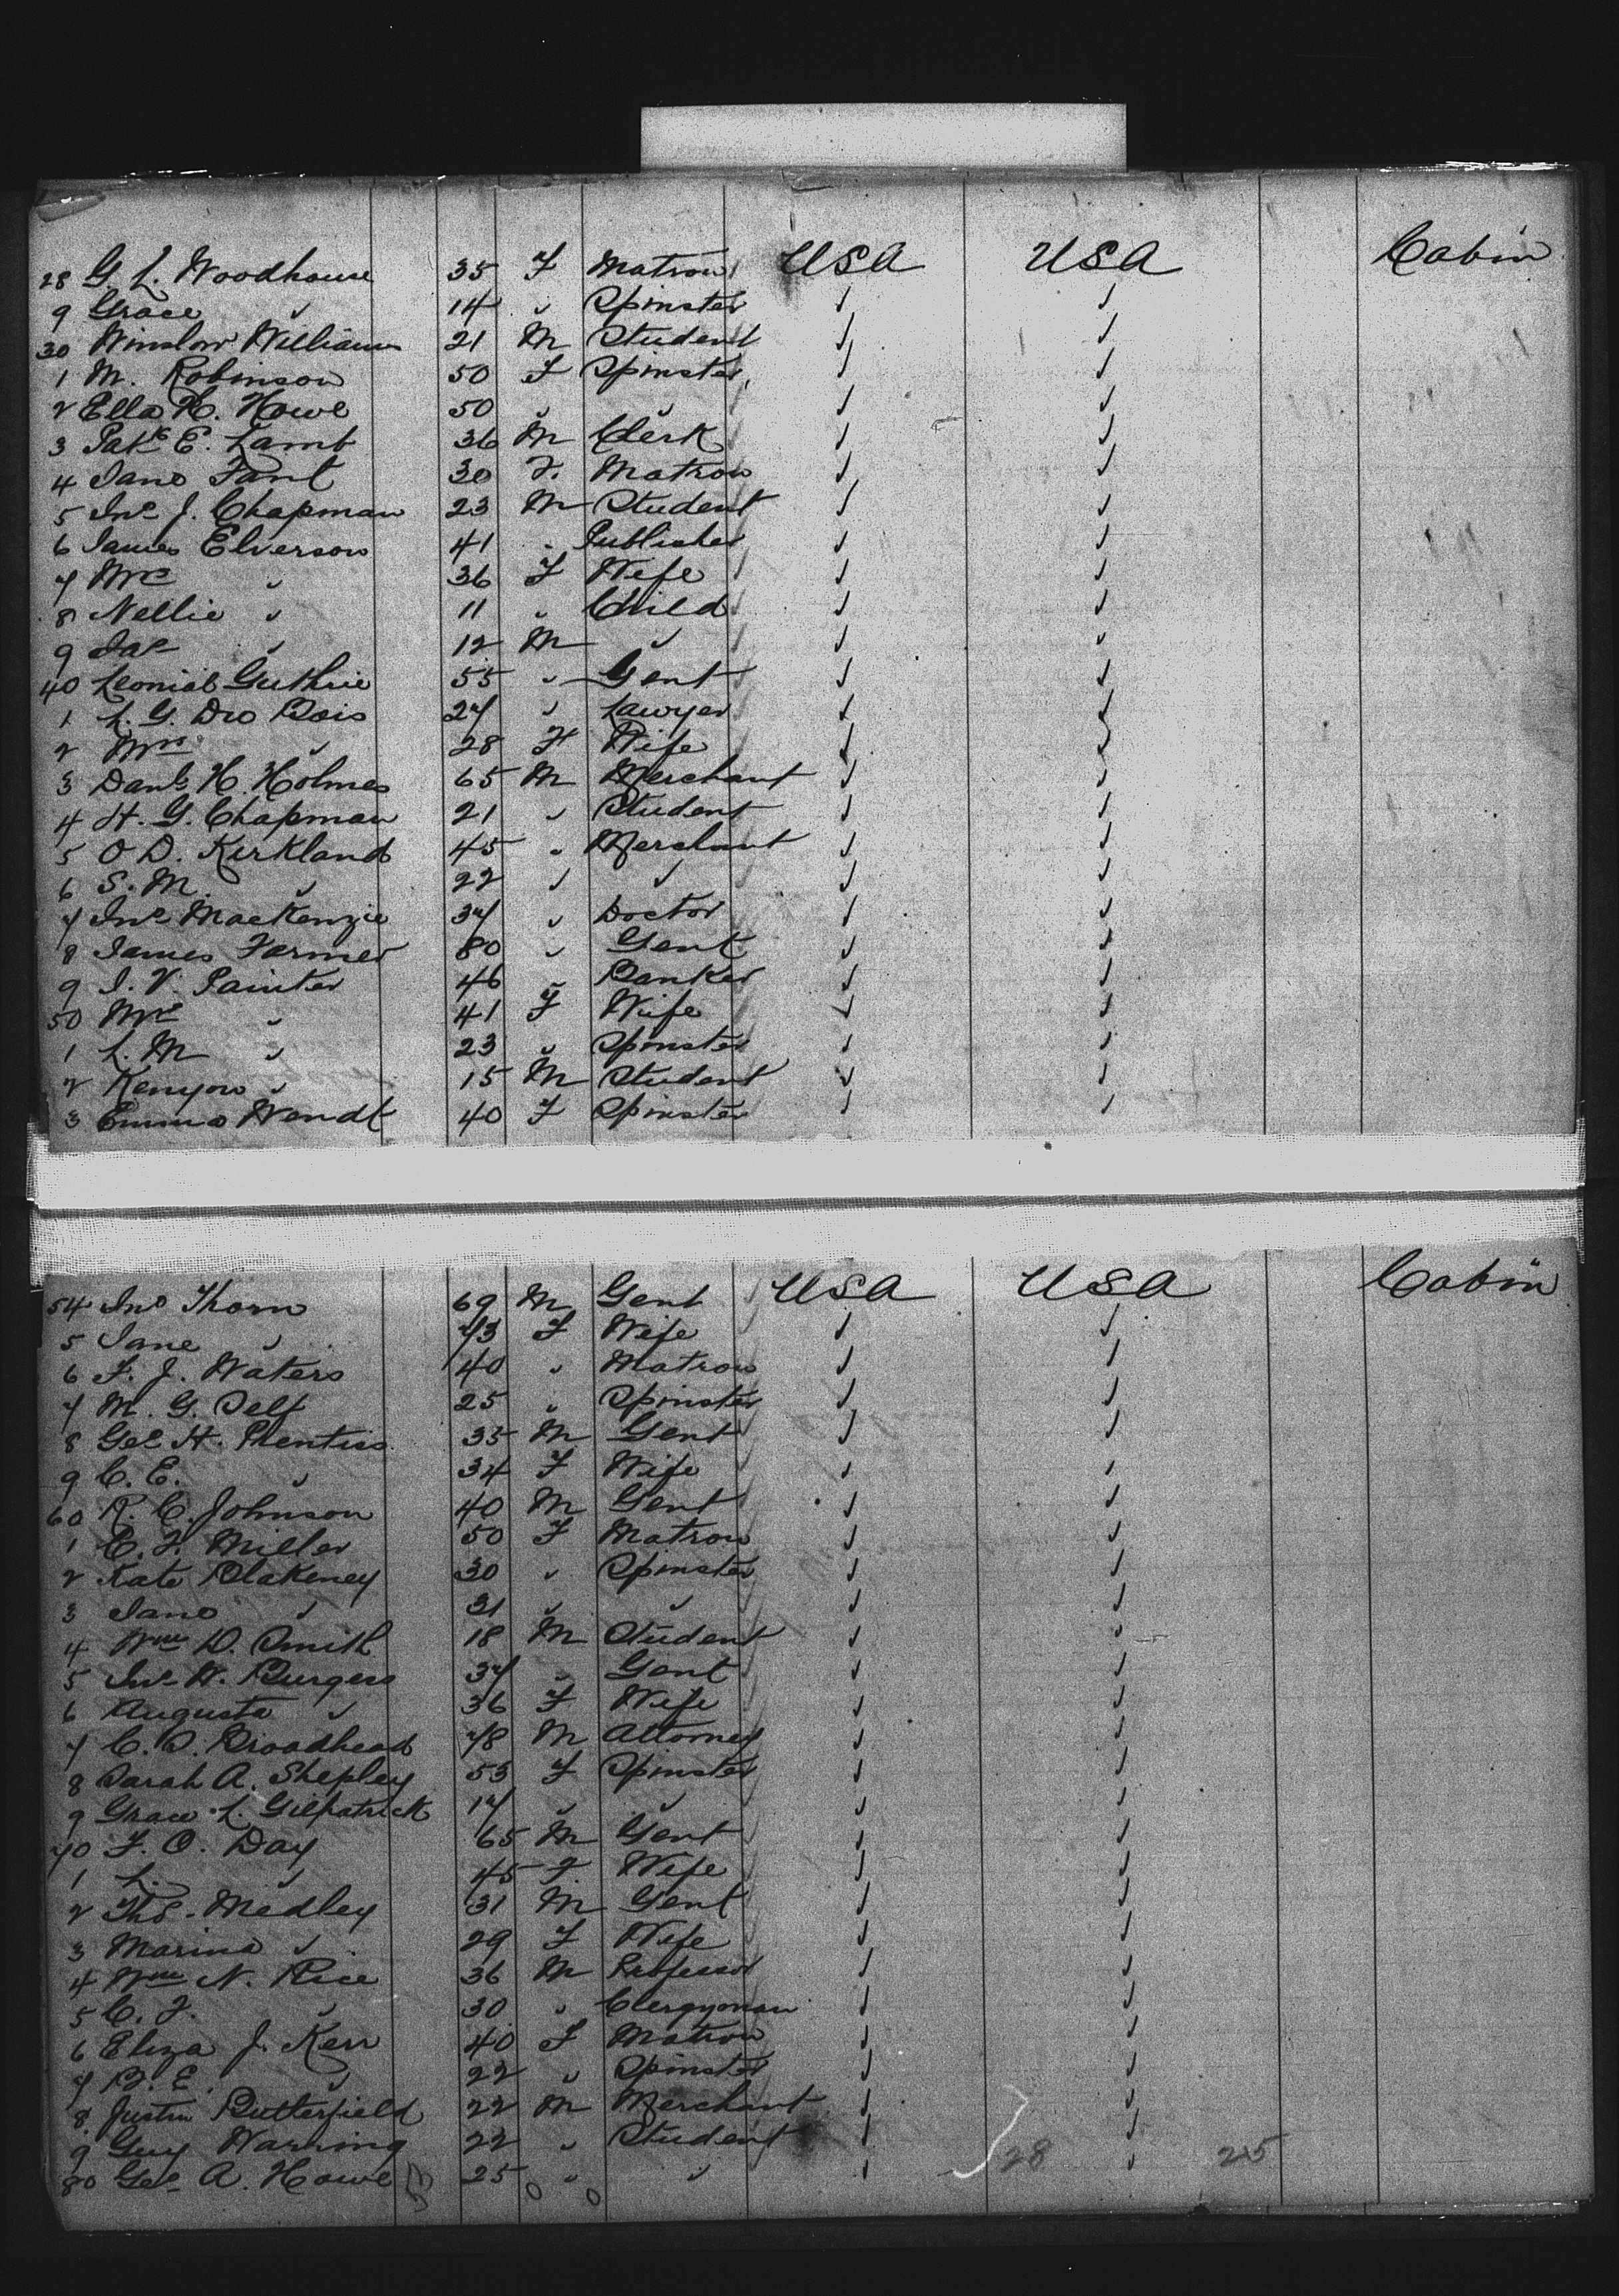 28 G. L. Woodhouse 35 F Matron USA USA Cabin
9 Grace " 14 " Spinster " "
30 Winslow Williams 21 M Student " "
1 M. Robinson 50 F Spinster " "
2 Ella H. Howe 50 " " " "
3 Patk E. Lamb 36 M Clerk " "
4 Jane Fant 30 F. Matron " "
5 Jno J. Chapman 23 M Student " "
6 James Elverson 41 " Publisher " "
7 Mrs " 36 F Wife " "
8 Nellie " 11 " Child " "
9 Jas " 12 M " " "
40 Guthrie 55 " Gent " "
1 L. G. Du Bois 27 " Lawyer " "
2 Mrs " 28 F Wife " "
3 Danl H. Holmes 65 M Merchant " "
4 H. G. Chapman 21 " Student " "
5 O D. Kirkland 45 " Merchant " "
6 S. M. " 22 " " " "
7 Jno MacKenzie 37 " Doctor " "
8 James Farmer 80 " Gent " "
9 J. V. Painter 46 " Banker " "
50 Mrs " 41 F Wife " "
1 L. M " 23 " Spinster " "
2 Kenyon " 15 M Student " "
3 Emma Wendt 40 F Spinster " "
54 Jno Thorn 69 M Gent USA USA Cabin
5 Jane " 73 F Wife " "
6 F. J. Waters 40 " Matron " "
7 M. G. Self 25 " Spinster " "
8 Geo H. Prentiss 35 M Gent " "
9 C. E. " 34 F Wife " "
60 R. C. Johnson 40 M Gent " "
1 C. F. Miller 50 F Matron " "
2 Kate Blakeney 30 " Spinster " "
3 Jane " 31 " " " "
4 Wm D. Smith 18 M Student " "
5 Jno W. Burgess 37 " Gent " "
6 Augusta " 36 F Wife " "
7 C. S. Broadhead 78 M Attorney " "
8 Sarah A. Shepley 53 F Spinster " "
9 Grace L. Gilpatrick 17 " " " "
70 F. O. Day 65 M Gent " "
1 L. " 45 F. Wife " "
2 Thos. Medley 31 M Gent " "
3 Marina " 29 F Wife " "
4 Wm N. Rice 36 M Professor " "
5 C. F. " 30 " Clergyman " "
6 Eliza J. Kerr 40 F Matron " "
7 B. E. " 22 " Spinster " "
8 Justin Butterfield 22 M Merchant " "
9 Guy Warring 22 " Student " "
80 Geo A. Howe 53 25 " " " 28 " 25